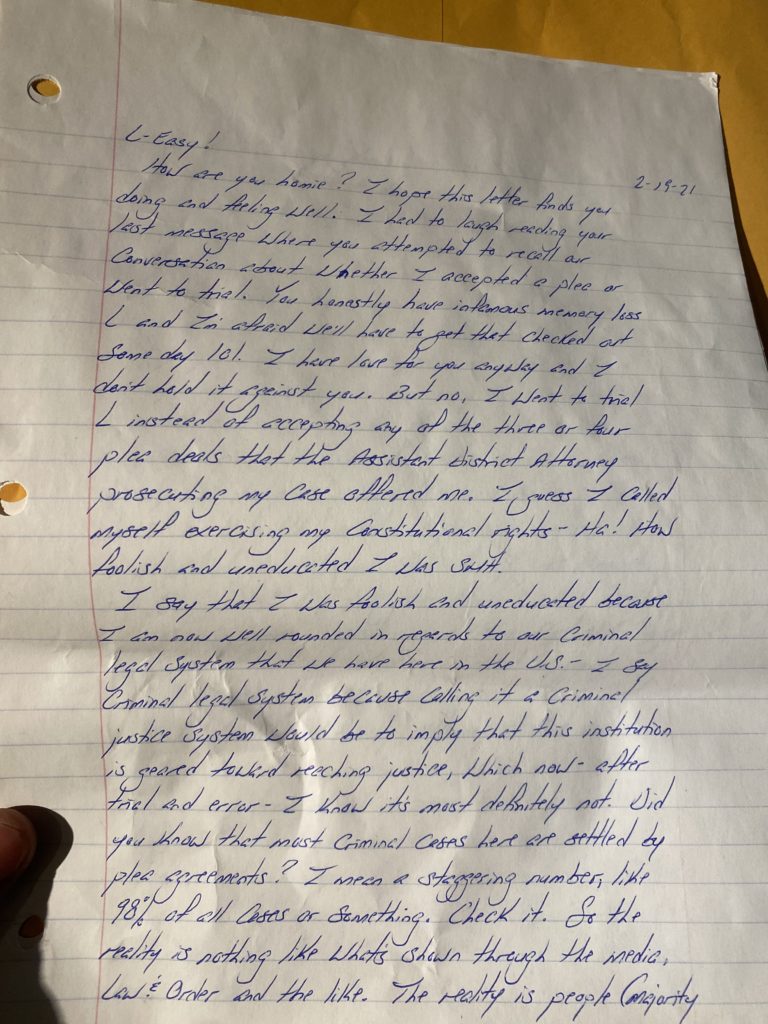 L-Easy!
2-19-21
How are you homie? I hope this letter finds you
doing and feeling well. I had to laugh reading your
last message where you attempted to recall our
Conversation about whether I accepted a plea or
went to trial. You honestly have infamous memory loss
L and I'm afraid we'll have to get that checked out
Some day lol. I have love for you anyway and I
don't hold it against you. But no, I went to trial
L instead of accepting any of the three or four
plea deals that the Assistant District Attorney
prosecuting my case offered me. I guess I called
myself exercising my Constitutional rights - Ha! How
foolish and uneducated I was SMH.
I say that I was foolish and uneducated because
I am now well rounded in regards to our Criminal
legal System that we have here in the U.S. - I say
Criminal legal system because calling it a Criminal
justice system would be to imply that this institution
is geared toward reaching justice, which now - after
trial and error - I know it's most definitely not. Did
you know that most Criminal Cases here are settled by
plea agreements? I mean a staggering number, like
98% of all cases or something. Check it. So the
reality is nothing like what's shown through the media,
Law & Order and the like. The reality is people (majority